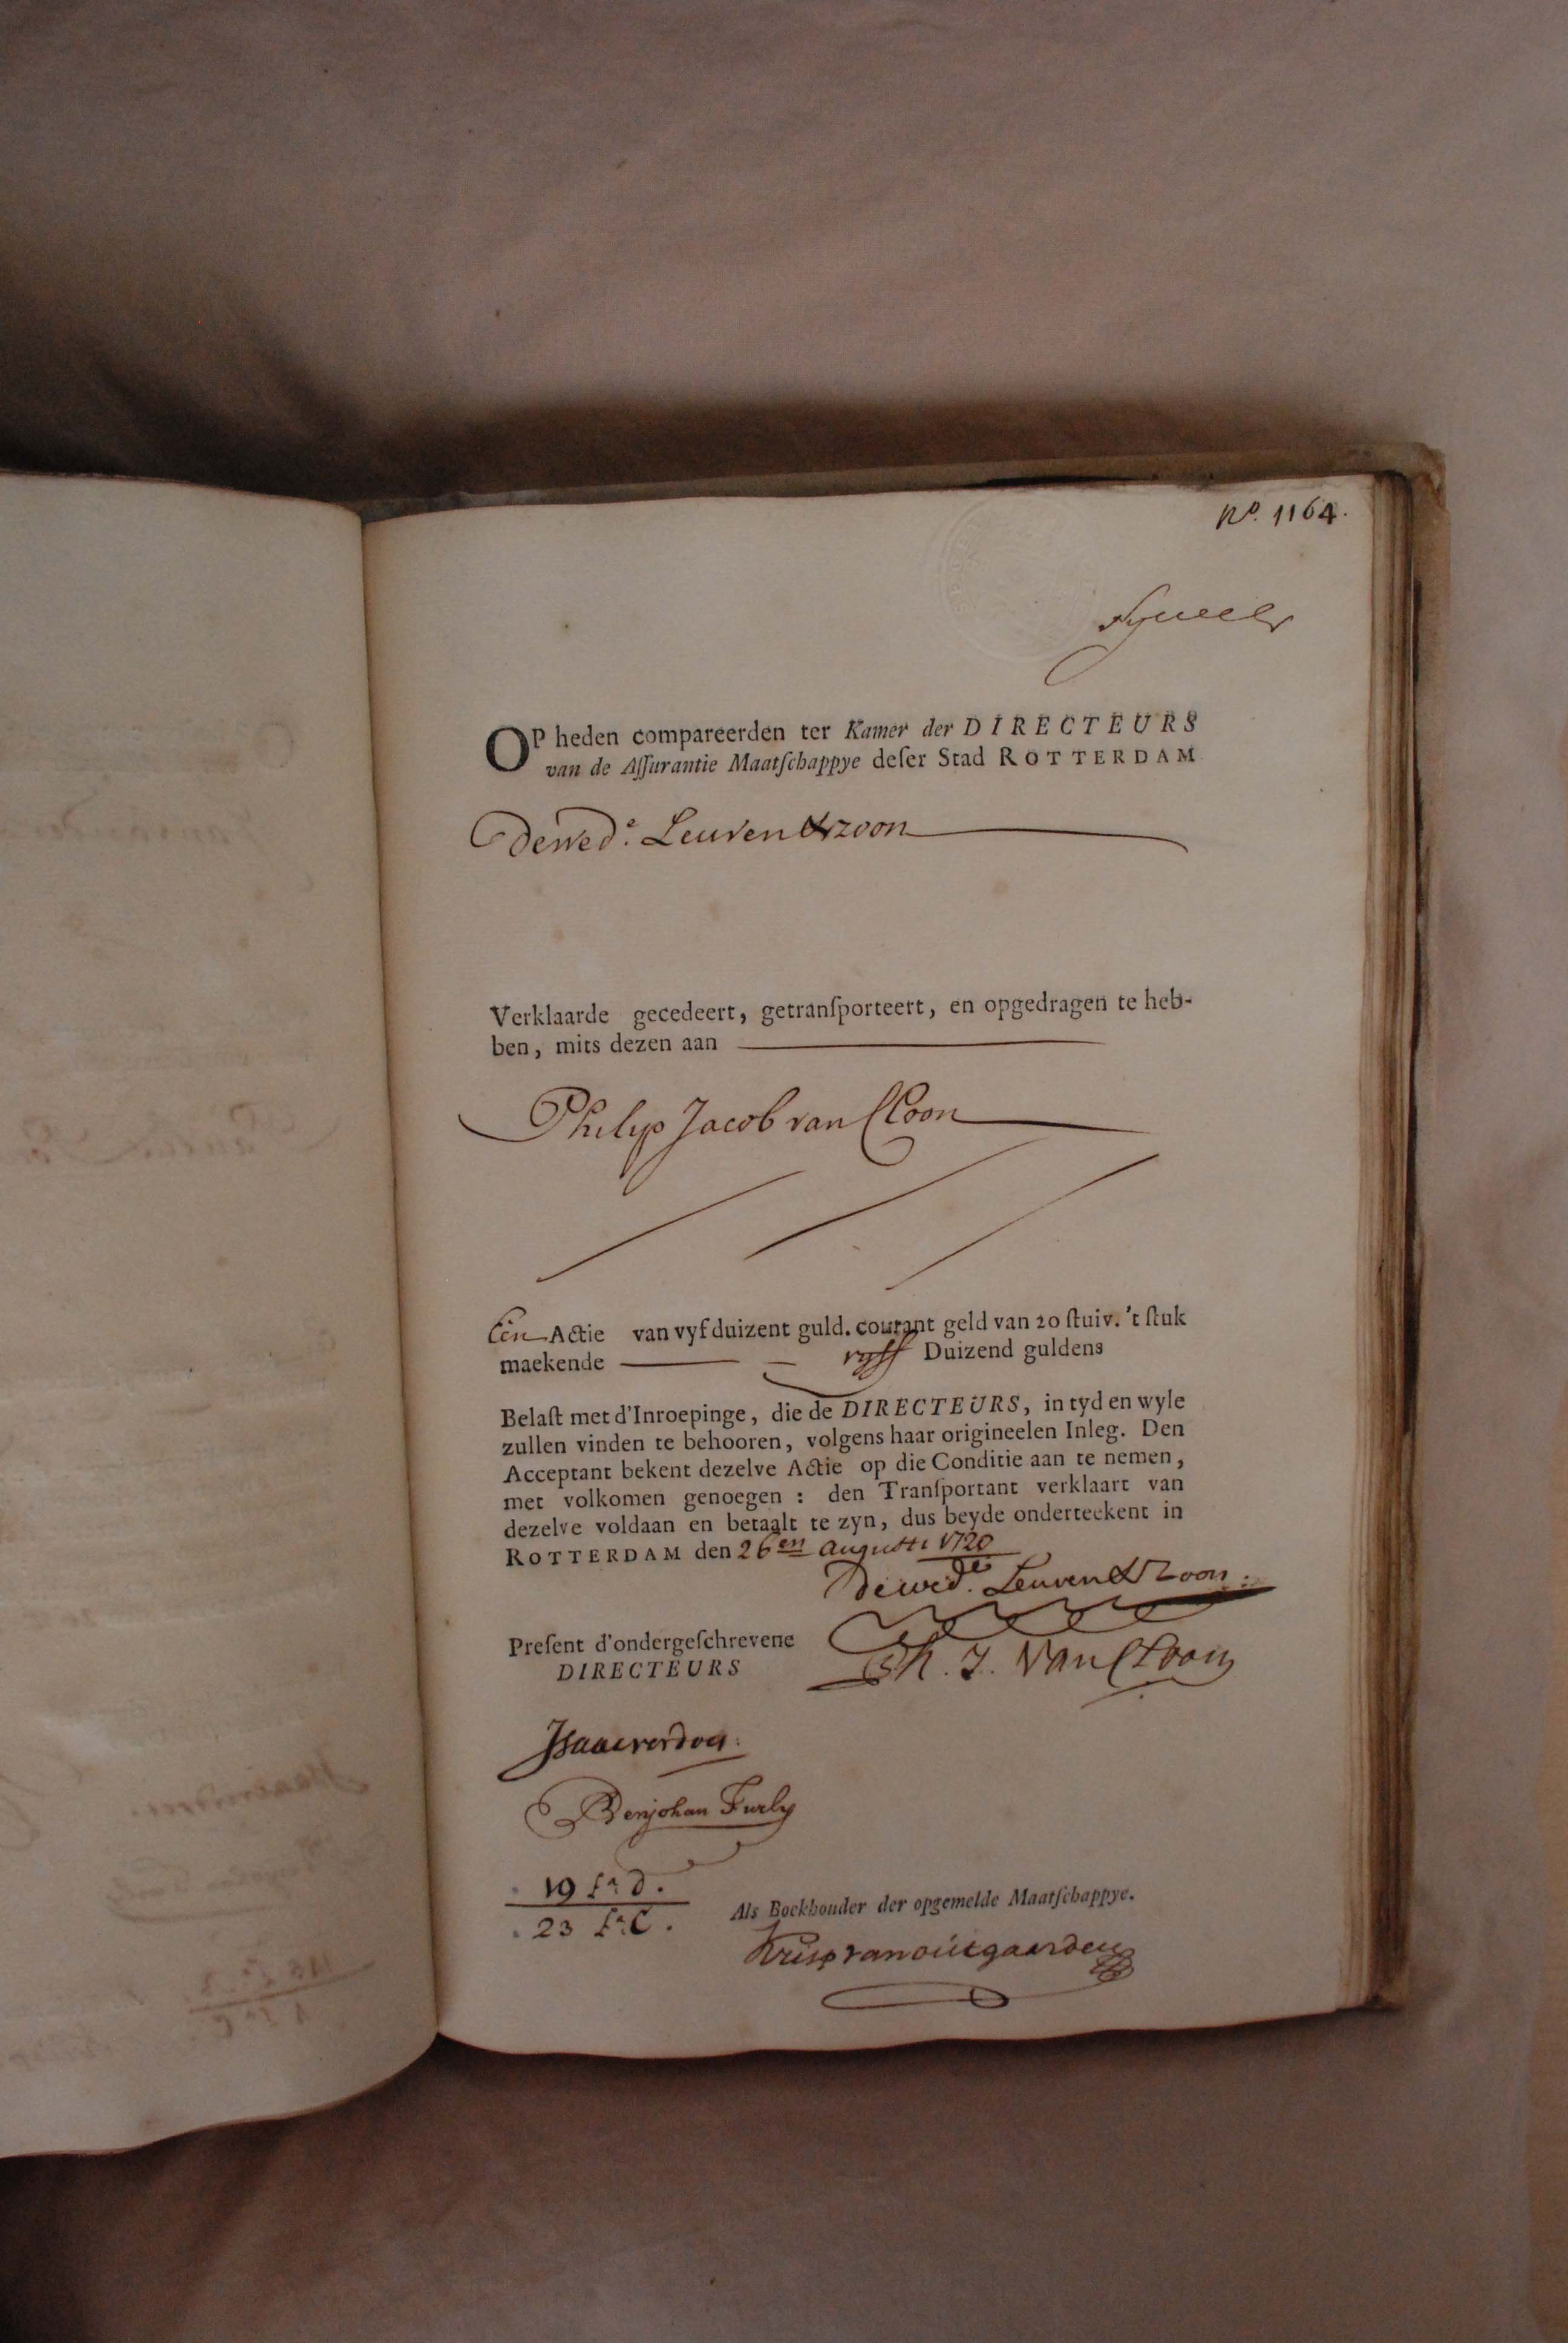 No. 1164.
OP heden compareerden ter Kamer der DIRECTEURS
van de Aſſurantie Maatſchappye deſer Stad ROTTERDAM
De wed.e Leuven & zoon
Verklaarde gecedeert, getranſporteert, en opgedragen te heb-
ben, mits dezen aan
Philip Jacob van
Een Actie van vyf duizent guld. courant geld van 20 ſtuiv. 't ſtuk
maekende vyff Duizend guldens
Belaſt met d'Inroepinge, die de DIRECTEURS, in tyd en wyle
zullen vinden te behooren, volgens haar origineelen Inleg. Den
Acceptant bekent dezelve Actie op die Conditie aan te nemen,
met volkomen genoegen : den Tranſportant verklaart van
dezelve voldaan en betaalt te zyn, dus beyde onderteekent in
ROTTERDAM den 26en augusti 1720
De wed.e Leuven & Zoon
Preſent d'ondergeſchrevene
DIRECTEURS
Ph. J. Van
Isaac verdoes
Benjohan Furly
19 fo. d.
23 fo. C.
Als Boekhouder der opgemelde Maatſchappye.